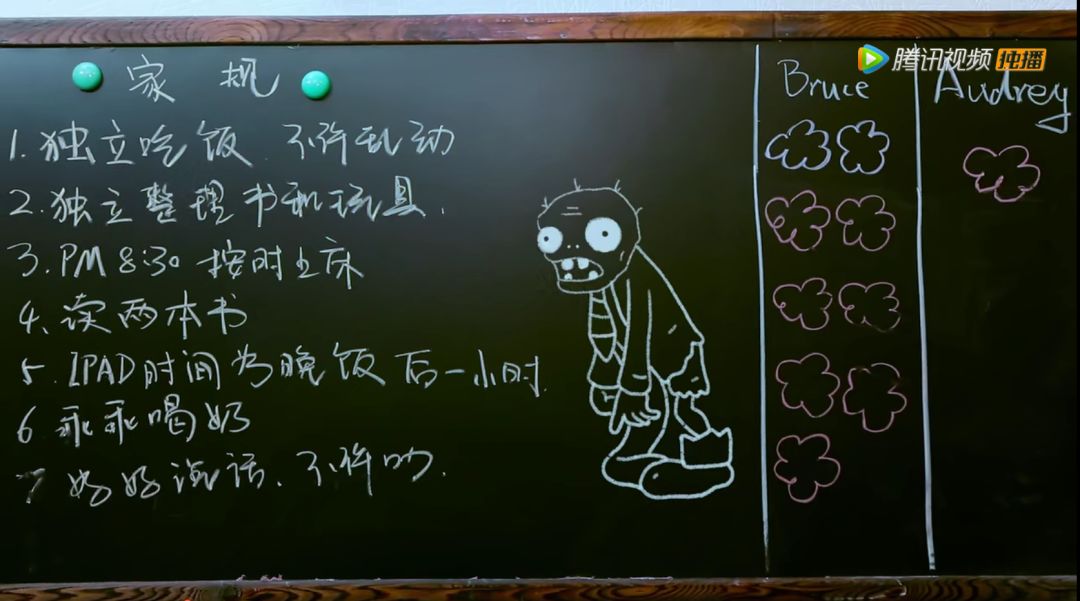 家 规
1. 独立吃饭 不许乱动
2. 独立整理书和玩具.
3. PM 8:30 按时上床
4、读两本书
5. IPAD时间为晚饭后一小时.
6 乖乖喝奶
7 好好说话、不许吵.
Bruce
Audrey
腾讯视频 独播